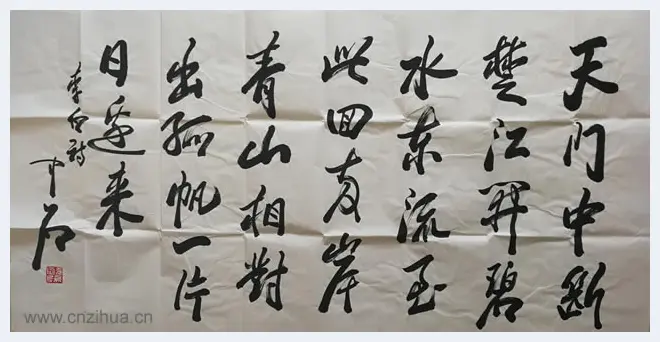 天门中断
楚江開碧
水东流至
此回两岸
青山相對
出孤帆一片
日边来
李白诗
中石
www.cnzihua.cn